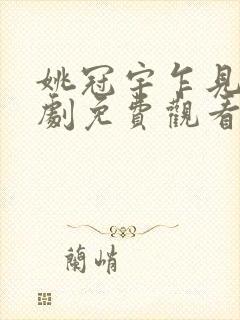 姚冠宇乍見
劇免費觀看
蘭峭